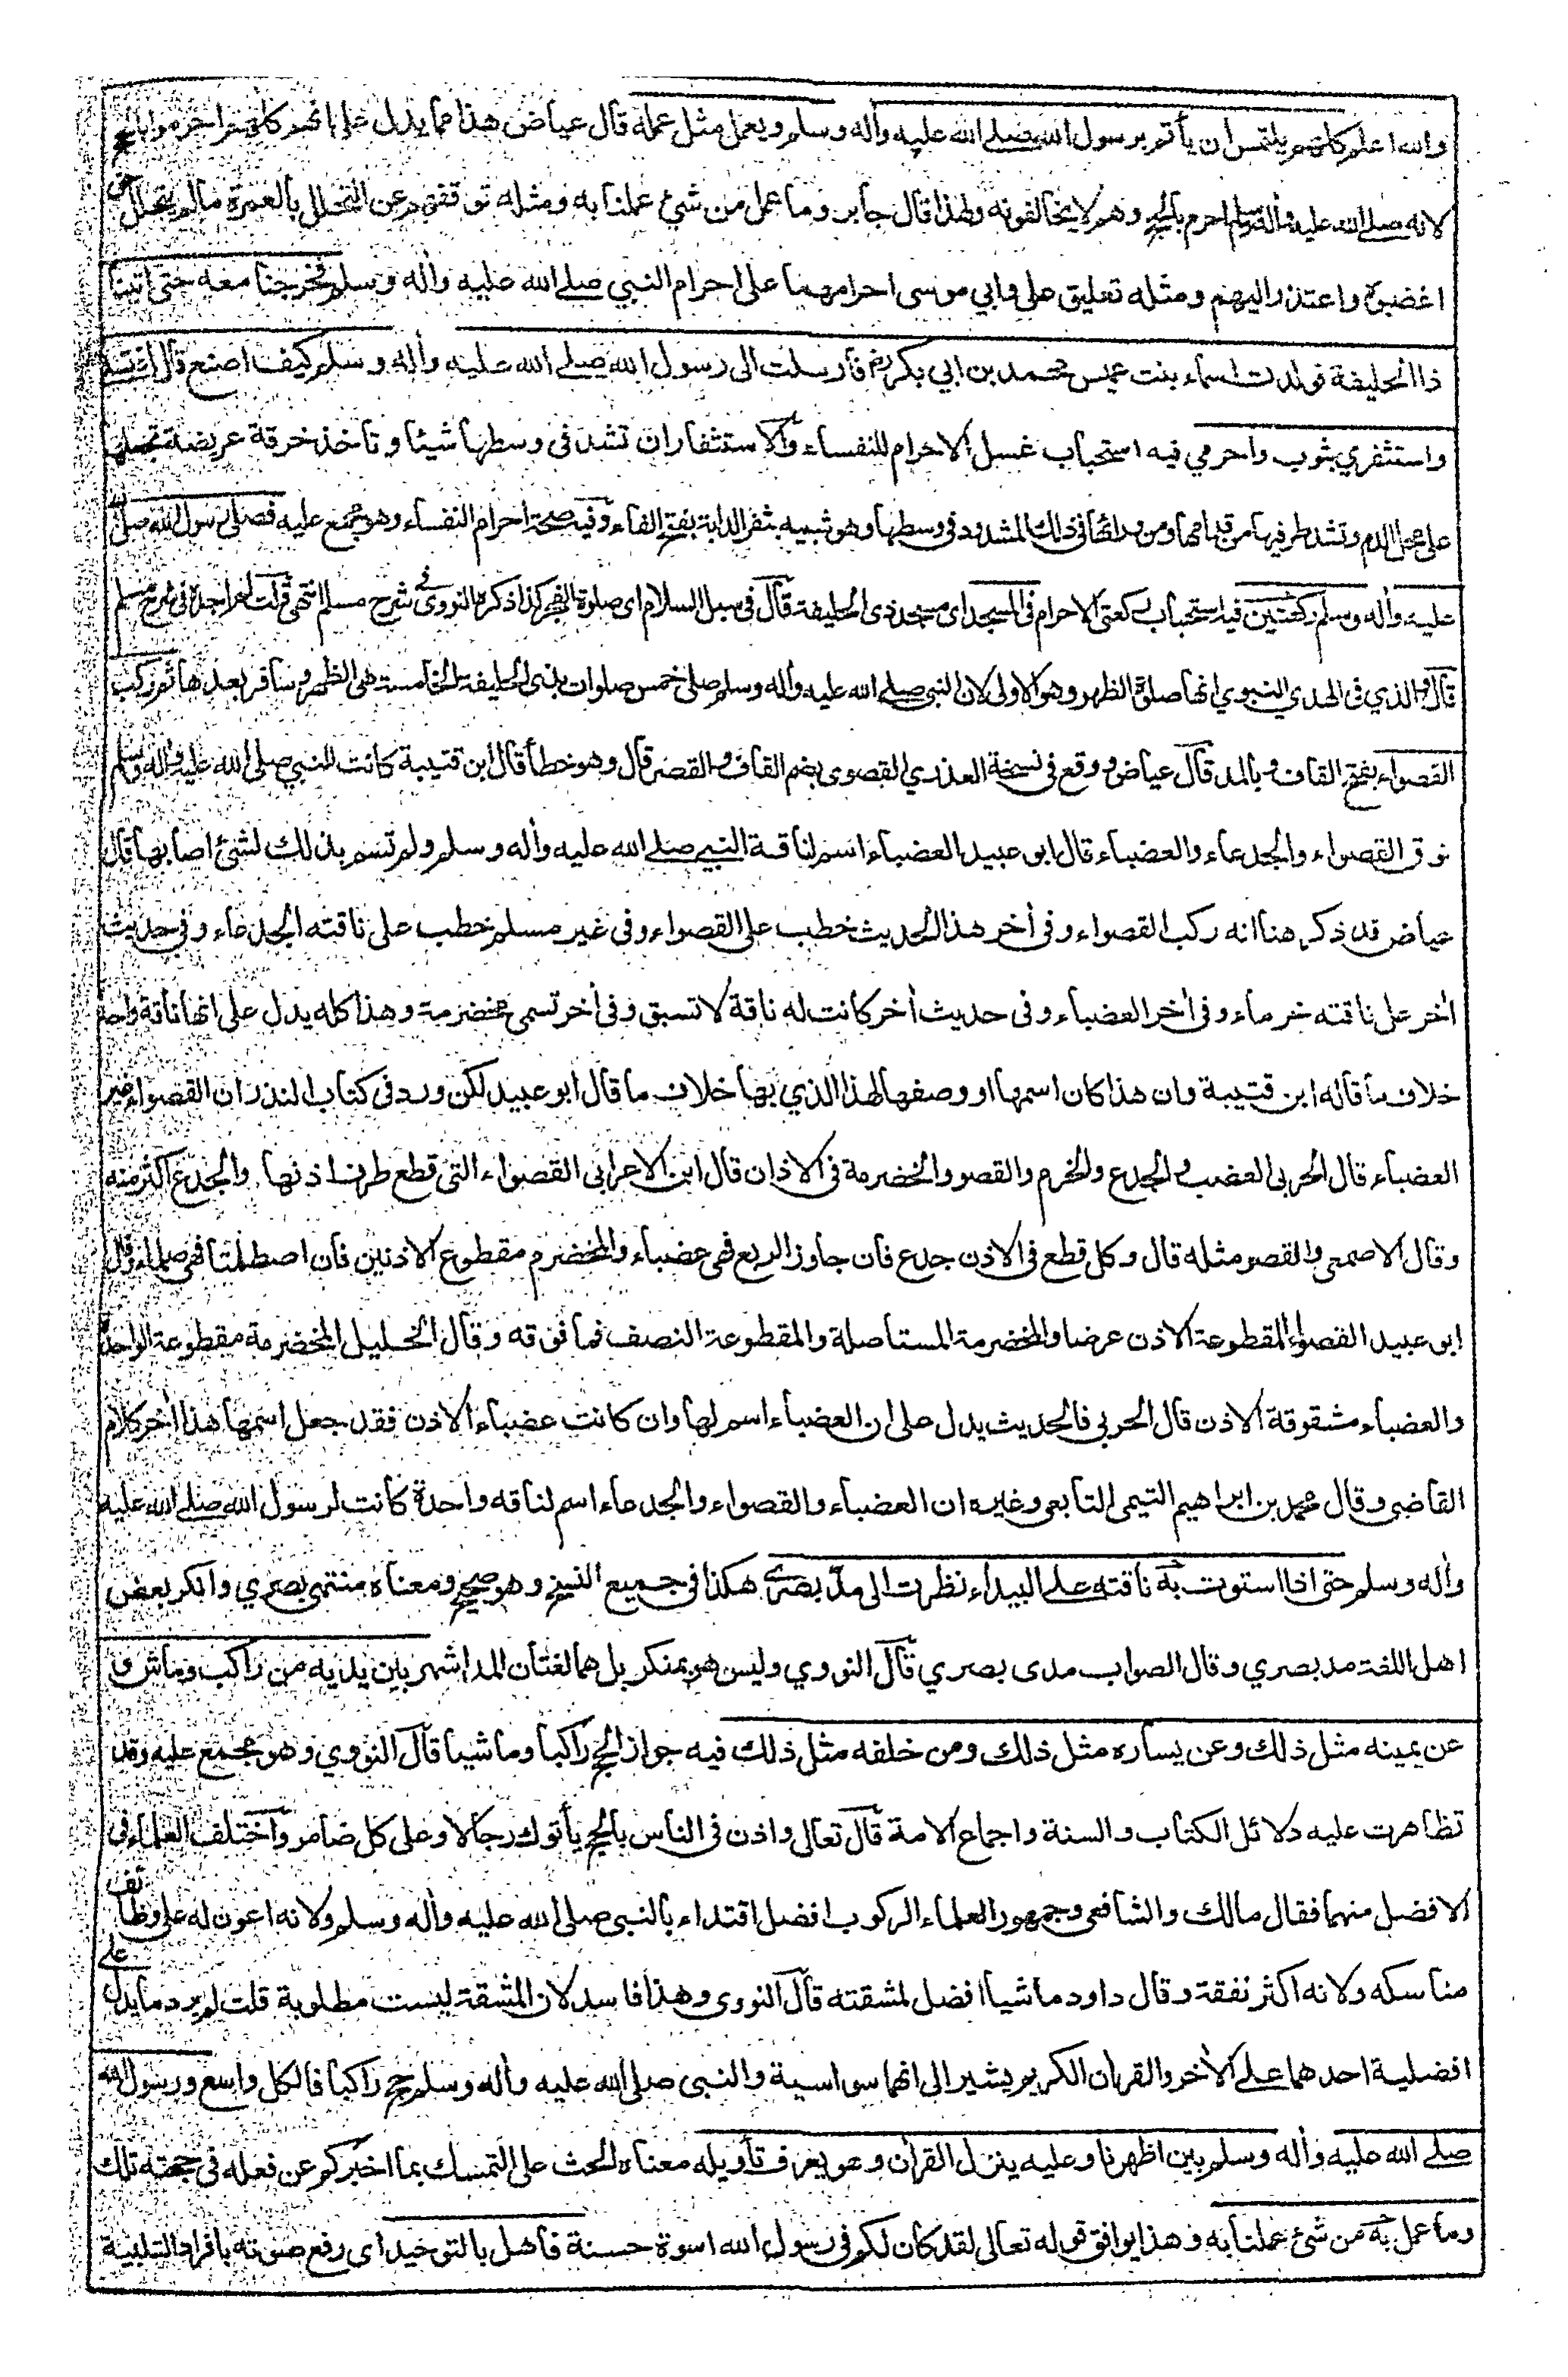 والله اعلم كلهم يلتمس ان يأتم برسول الله صلى الله عليه وأله وسلم ويعمل مثل عمله قال عياض هذا مما يدل على انهم كلهم احرموا بالحج
لانه صلى الله عليه وأله وسلم احرم بالحج وهم لا يخالفونه ولهذا قال جابر وما عمل من شئ عملنا به ومثله توقفهم عن التحلل بالعمرة مالم يتحلل حتى
اغضبوه واعتذر اليهم ومثله تعليق علي وابي موسى احرامهما على احرام النبي صلى الله عليه وأله وسلم فخرجنا معه حتى اتينا
ذا الحليفة فولدت اسماء بنت عميس محمد بن ابي بكر رض فأرسلت الى رسول الله صلى الله عليه وأله وسلم كيف اصنع قال اغتسلي
واستثفري بثوب واحرمي فيه استحباب غسل الاحرام للنفساء والاستثفار ان تشد فى وسطها شيئا وتأخذ خرقة عريضة تجعلها
على محل الدم وتشد طرفيها من قدامها ومن ورائها فى ذلك المشدود فى وسطها وهو شبيه بثفر الدابة بفتح الفاء وفيه صحة احرام النفساء وهو مجمع عليه فصلى رسول الله صلى الله
عليه وأله وسلم ركعتين فيه استحباب ركعتى الاحرام فى المسجد اى مسجد ذى الحليفة قال فى سبل السلام اى صلوة الفجر كذا ذكره النووى فى شرح مسلم انتهى قلت لم اجده فى شرح مسلم
قال والذي فى الهدي النبوي انها صلوة الظهر وهو الاولى لان النبى صلى الله عليه وأله وسلم صلى خمس صلوات بذى الحليفة الخامسة هى الظهر وسافر بعدها ثم ركب
القصواء بفتح القاف وبالمد قال عياض ووقع فى نسخة العذري القصوى بضم القاف والقصر قال وهو خطأ قال ابن قتيبة كانت للنبي صلى الله عليه وأله وسلم
نوق القصواء والجدعاء والعضباء قال ابو عبيد العضباء اسم لناقة النبي صلى الله عليه وأله وسلم ولم تسم بذلك لشئ اصابها قال
عياض قد ذكر هنا انه ركب القصواء وفى أخر هذا الحديث خطب على القصواء وفى غير مسلم خطب على ناقته الجدعاء وفى حديث
أخر على ناقته خرماء وفى أخر العضباء وفى حديث أخر كانت له ناقة لا تسبق وفى أخر تسمى مخضرمة وهذا كله يدل على انها ناقة واحدة
خلاف ما قاله ابن قتيبة وان هذا كان اسمها او وصفها لهذا الذي بها خلاف ما قال ابو عبيد لكن ورد فى كتاب النذر ان القصواء غير
العضباء قال الحربى العضب والجدع والخرم والقصو والخضرمة فى الاذان قال ابن الاعرابى القصواء التى قطع طرف اذنها والجدع اكثر منه
وقال الاصمعى والقصو مثله قال وكل قطع فى الاذن جدع فان جاوز الربع فهى عضباء والمخضرم مقطوع الاذنين فان اصطلمتا فهى صلماء وقال
ابو عبيد القصواء المقطوعة الاذن عرضا والمخضرمة المستأصلة والمقطوعة النصف فما فوقه وقال الخليل المخضرمة مقطوعة الواحدة
والعضباء مشقوقة الاذن قال الحربى فالحديث يدل على ان العضباء اسم لها وان كانت عضباء الاذن فقد جعل اسمها هذا أخر كلام
القاضى وقال محمد بن ابراهيم التيمى التابعى وغيره ان العضباء والقصواء والجدعاء اسم لناقه واحدة كانت لرسول الله صلى الله عليه
وأله وسلم حتى اذا استوت به ناقته على البيداء نظرت الى مد بصرى هكذا فى جميع النسخ وهو صحيح ومعناه منتهى بصري وانكر بعض
اهل اللغة مد بصري وقال الصواب مدى بصري قال النووي وليس هو بمنكر بل هما لغتان المد اشهر بين يديه من راكب وماش و
عن يمينه مثل ذلك وعن يساره مثل ذلك ومن خلفه مثل ذلك فيه جواز الحج راكبا وماشيا قال النووي وهو مجمع عليه وقد
تظاهرت عليه دلائل الكتاب والسنة واجماع الامة قال تعالى واذن فى الناس بالحج يأتوك رجالا وعلى كل ضامر واختلف العلماء فى
الافضل منهما فقال مالك والشافعى وجمهور العلماء الركوب افضل اقتداء بالنبى صلى الله عليه وأله وسلم ولانه اعون له على وظائف
مناسكه ولانه اكثر نفقة وقال داود ماشيا افضل لمشقته قال النووى وهذا فاسد لان المشقة ليست مطلوبة قلت لم يرد ما يدل على
افضلية احدهما على الأخر والقرأن الكريم يشير الى انهما سواسية والنبى صلى الله عليه وأله وسلم حج راكبا فالكل واسع ورسول الله
صلى الله عليه وأله وسلم بين اظهرنا وعليه ينزل القرأن وهو يعرف تأويله معناه الحث على التمسك بما اخبركم عن فعله فى حجته تلك
وما عمل به من شئ عملنا به وهذا يوافق قوله تعالى لقد كان لكم فى رسول الله اسوة حسنة فأهل بالتوحيد اى رفع صوته بافراد التلبية